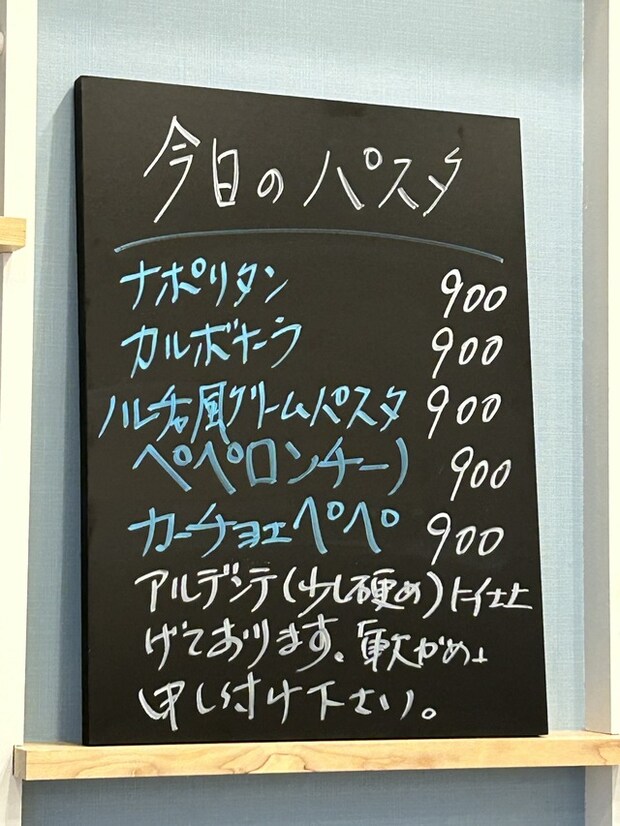 今日のパスタ
ナポリタン 900
カルボナーラ 900
ノルチャ風クリームパスタ 900
ペペロンチーノ 900
カーチョエペペ 900
アルデンテ(少し硬め)に仕上
げております。「軟がめ」
申し付け下さい。